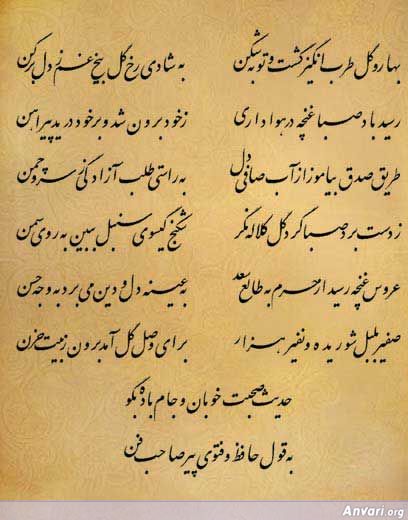 بهار و گل طرب انگیز گشت و توبه شکن به شادی رخ گل بیخ غم ز دل برکن
رسید باد صبا غنچه در هواداری ز خود برون شد و بر خود درید پیراهن
طریق صدق بیاموز از آب صافی دل به راستی طلب آزادگی ز سرو چمن
ز دست برد صبا گرد گل کلاله نگر شکنج گیسوی سنبل ببین به روی سمن
عروس غنچه رسید از حرم به طالع سعد به عینه دل و دین می برد به وجه حسن
صفیر بلبل شوریده و نفیر هزار برای وصل گل آمد برون ز بیت حزن
حدیث صحبت خوبان و جام باده بگو
به قول حافظ و فتوی پیر صاحب فن
Anvari.org